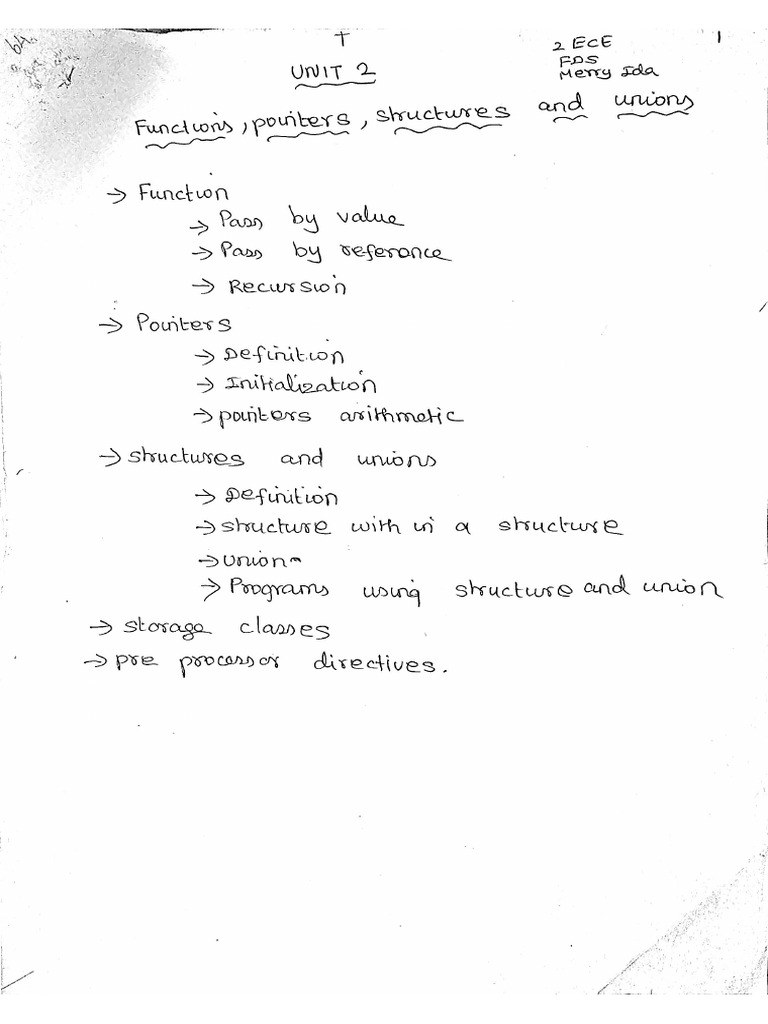 2 ECE
1
FDS
UNIT 2
Merry Ida
Functions, pointers, structures and unions
→ Function
→ Pass by value
→ Pass by reference
→ Recursion
→ Pointers
→ Definition
→ Initialization
→ pointers arithmetic
→ structures and unions
→ Definition
→ structure with in a structure
→ union
→ Programs using structure and union
→ storage classes
→ pre processor directives.